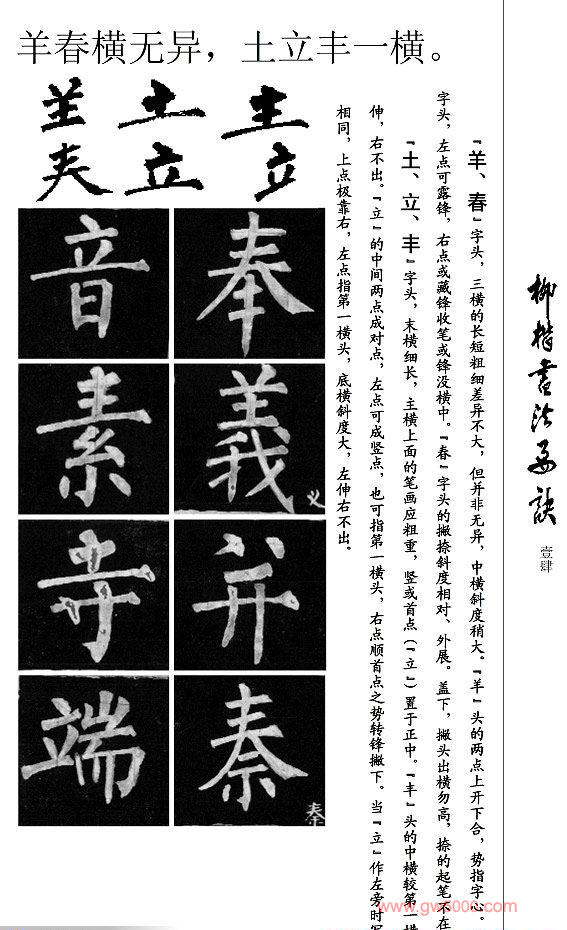 羊春横无异，土立丰一横。
土
立 立
音 奉
素 義 义
寺 并
端 秦 秦
柳楷書法要訣
壹肆
『羊、春』字头，三横的长短粗细差异不大，但并非无异，中横斜度稍大。『羊』头的两点上开下合，势指字心。
字头，左点可露锋，右点或藏锋收笔或锋没横中。『春』字头的撇捺斜度相对、外展。盖下，撇头出横勿高，捺的起笔不在
『土、立、丰』字头，末横细长，主横上面的笔画应粗重，竖或首点(『立』)置于正中。『丰』头的中横较第一横
伸，右不出。『立』的中间两点成对点，左点可成竖点，也可指第一横头，右点顺首点之势转锋撇下。当『立』作左旁时
相同，上点极靠右，左点指第一横头，底横斜度大，左伸右不出。
www.gw6000.com